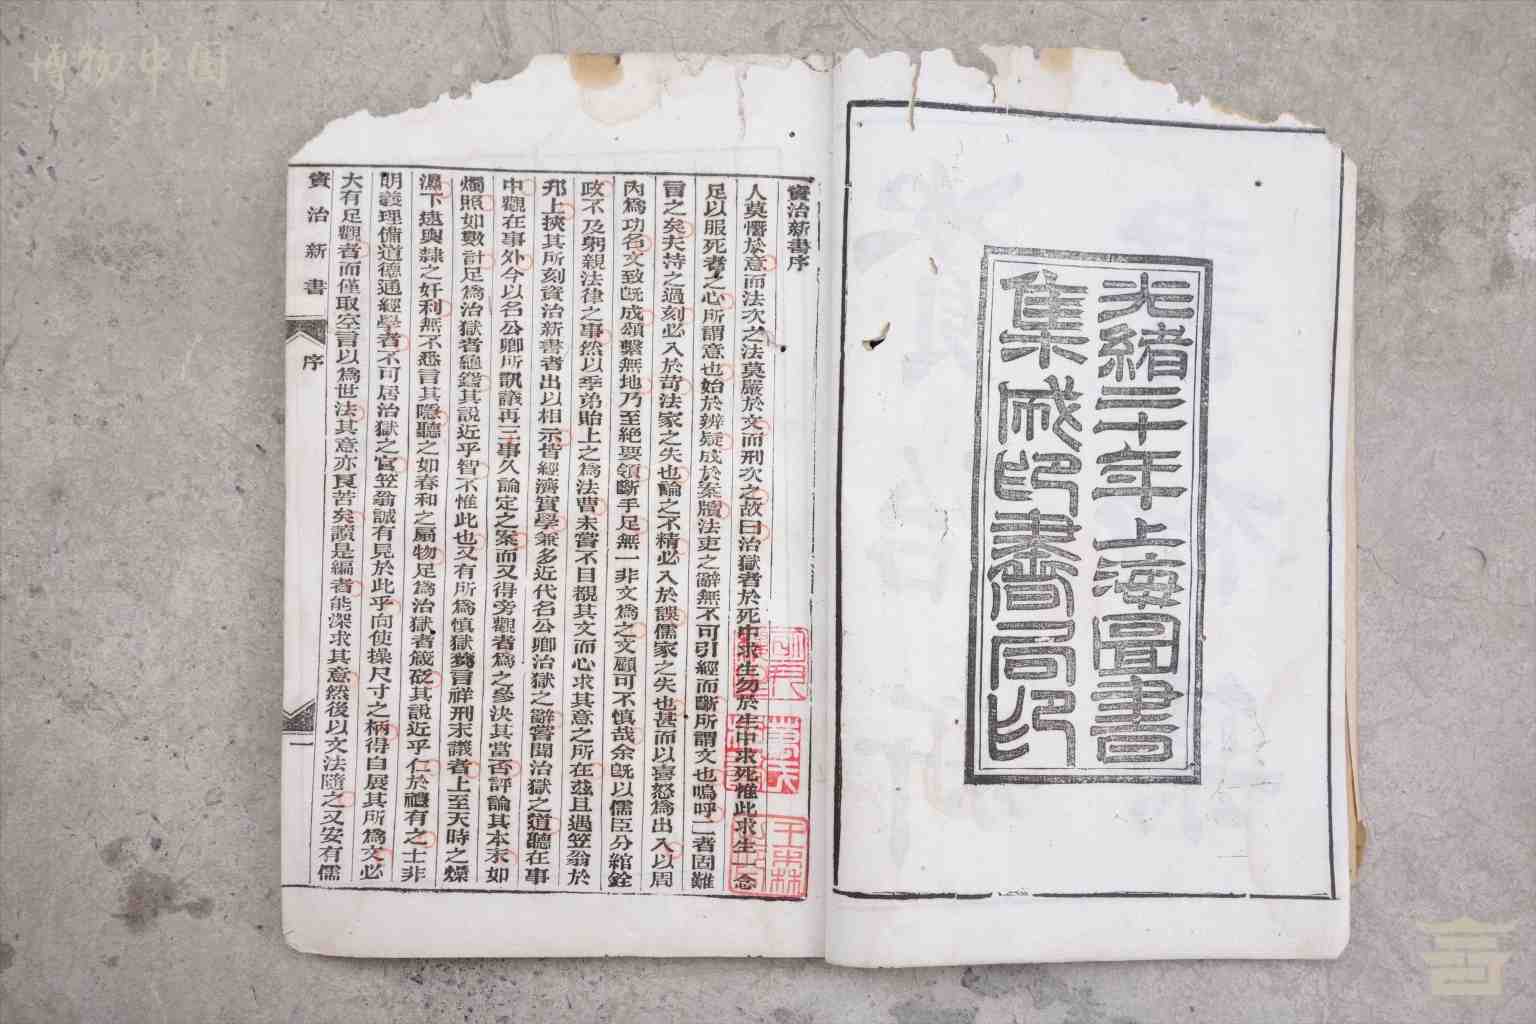 光緒二十年上海圖書
集成印書局印
資治新書序
人莫憯於意而法次之法莫嚴於文而刑次之故曰治獄者於死中求生勿於生中求死惟此求生一念
足以服死者之心所謂意也始於辨疑成於案牘法吏之辭無不可引經而斷所謂文也嗚呼二者固難
言之矣夫持之過刻必入於苛法家之失也論之不精必入於誤儒家之失也甚而以喜怒為出入以周
內為功名文致旣成頌繫無地乃至絕要領斷手足無一非文為之文顧可不慎哉余旣以儒臣分綰銓
政不及躬親法律之事然以季弟貽上之為法曹未嘗不目覩其文而心求其意之所在茲且遇笠翁於
邗上挾其所刻資治新書者出以相示皆經濟實學兼多近代名公卿治獄之辭嘗聞治獄之道聽在事
中觀在事外今以名公卿所訊議再三事久論定之案而又得旁觀者為之參決其當否評論其本末如
燭照如數計足為治獄者龜鑑其說近乎智不惟此也又有所為慎獄芻言祥刑末議者上至天時之燥
濕下逮輿隸之奸利無不悉言其隱聽之如春和之屬物足為治獄者箴砭其說近乎仁於禮有之士非
明義理備道德通經學者不可居治獄之官笠翁誠有見於此乎向使操尺寸之柄得自展其所為文必
大有足觀者而僅取空言以為世法其意亦良苦矣讀是編者能深求其意然後以文法隨之又安有儒
資治新書 序 一
博物中国